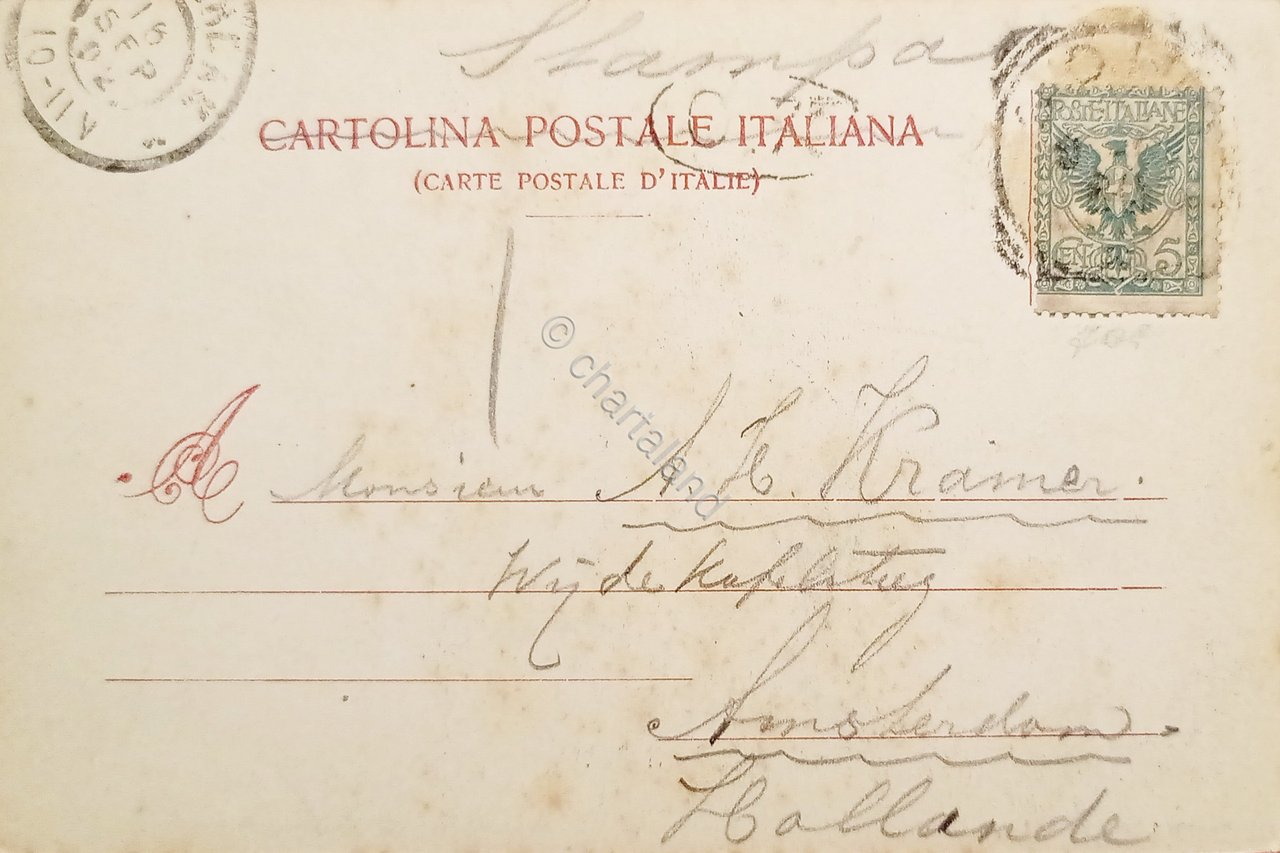 Stampa
CARTOLINA POSTALE ITALIANA
(CARTE POSTALE D'ITALIE)
POSTE ITALIANE
CEN 5
15 SEP 02
© chartaland
A Monsieur A. H. Kramer.
Wijde Kapelsteeg
Amsterdam.
Hollande